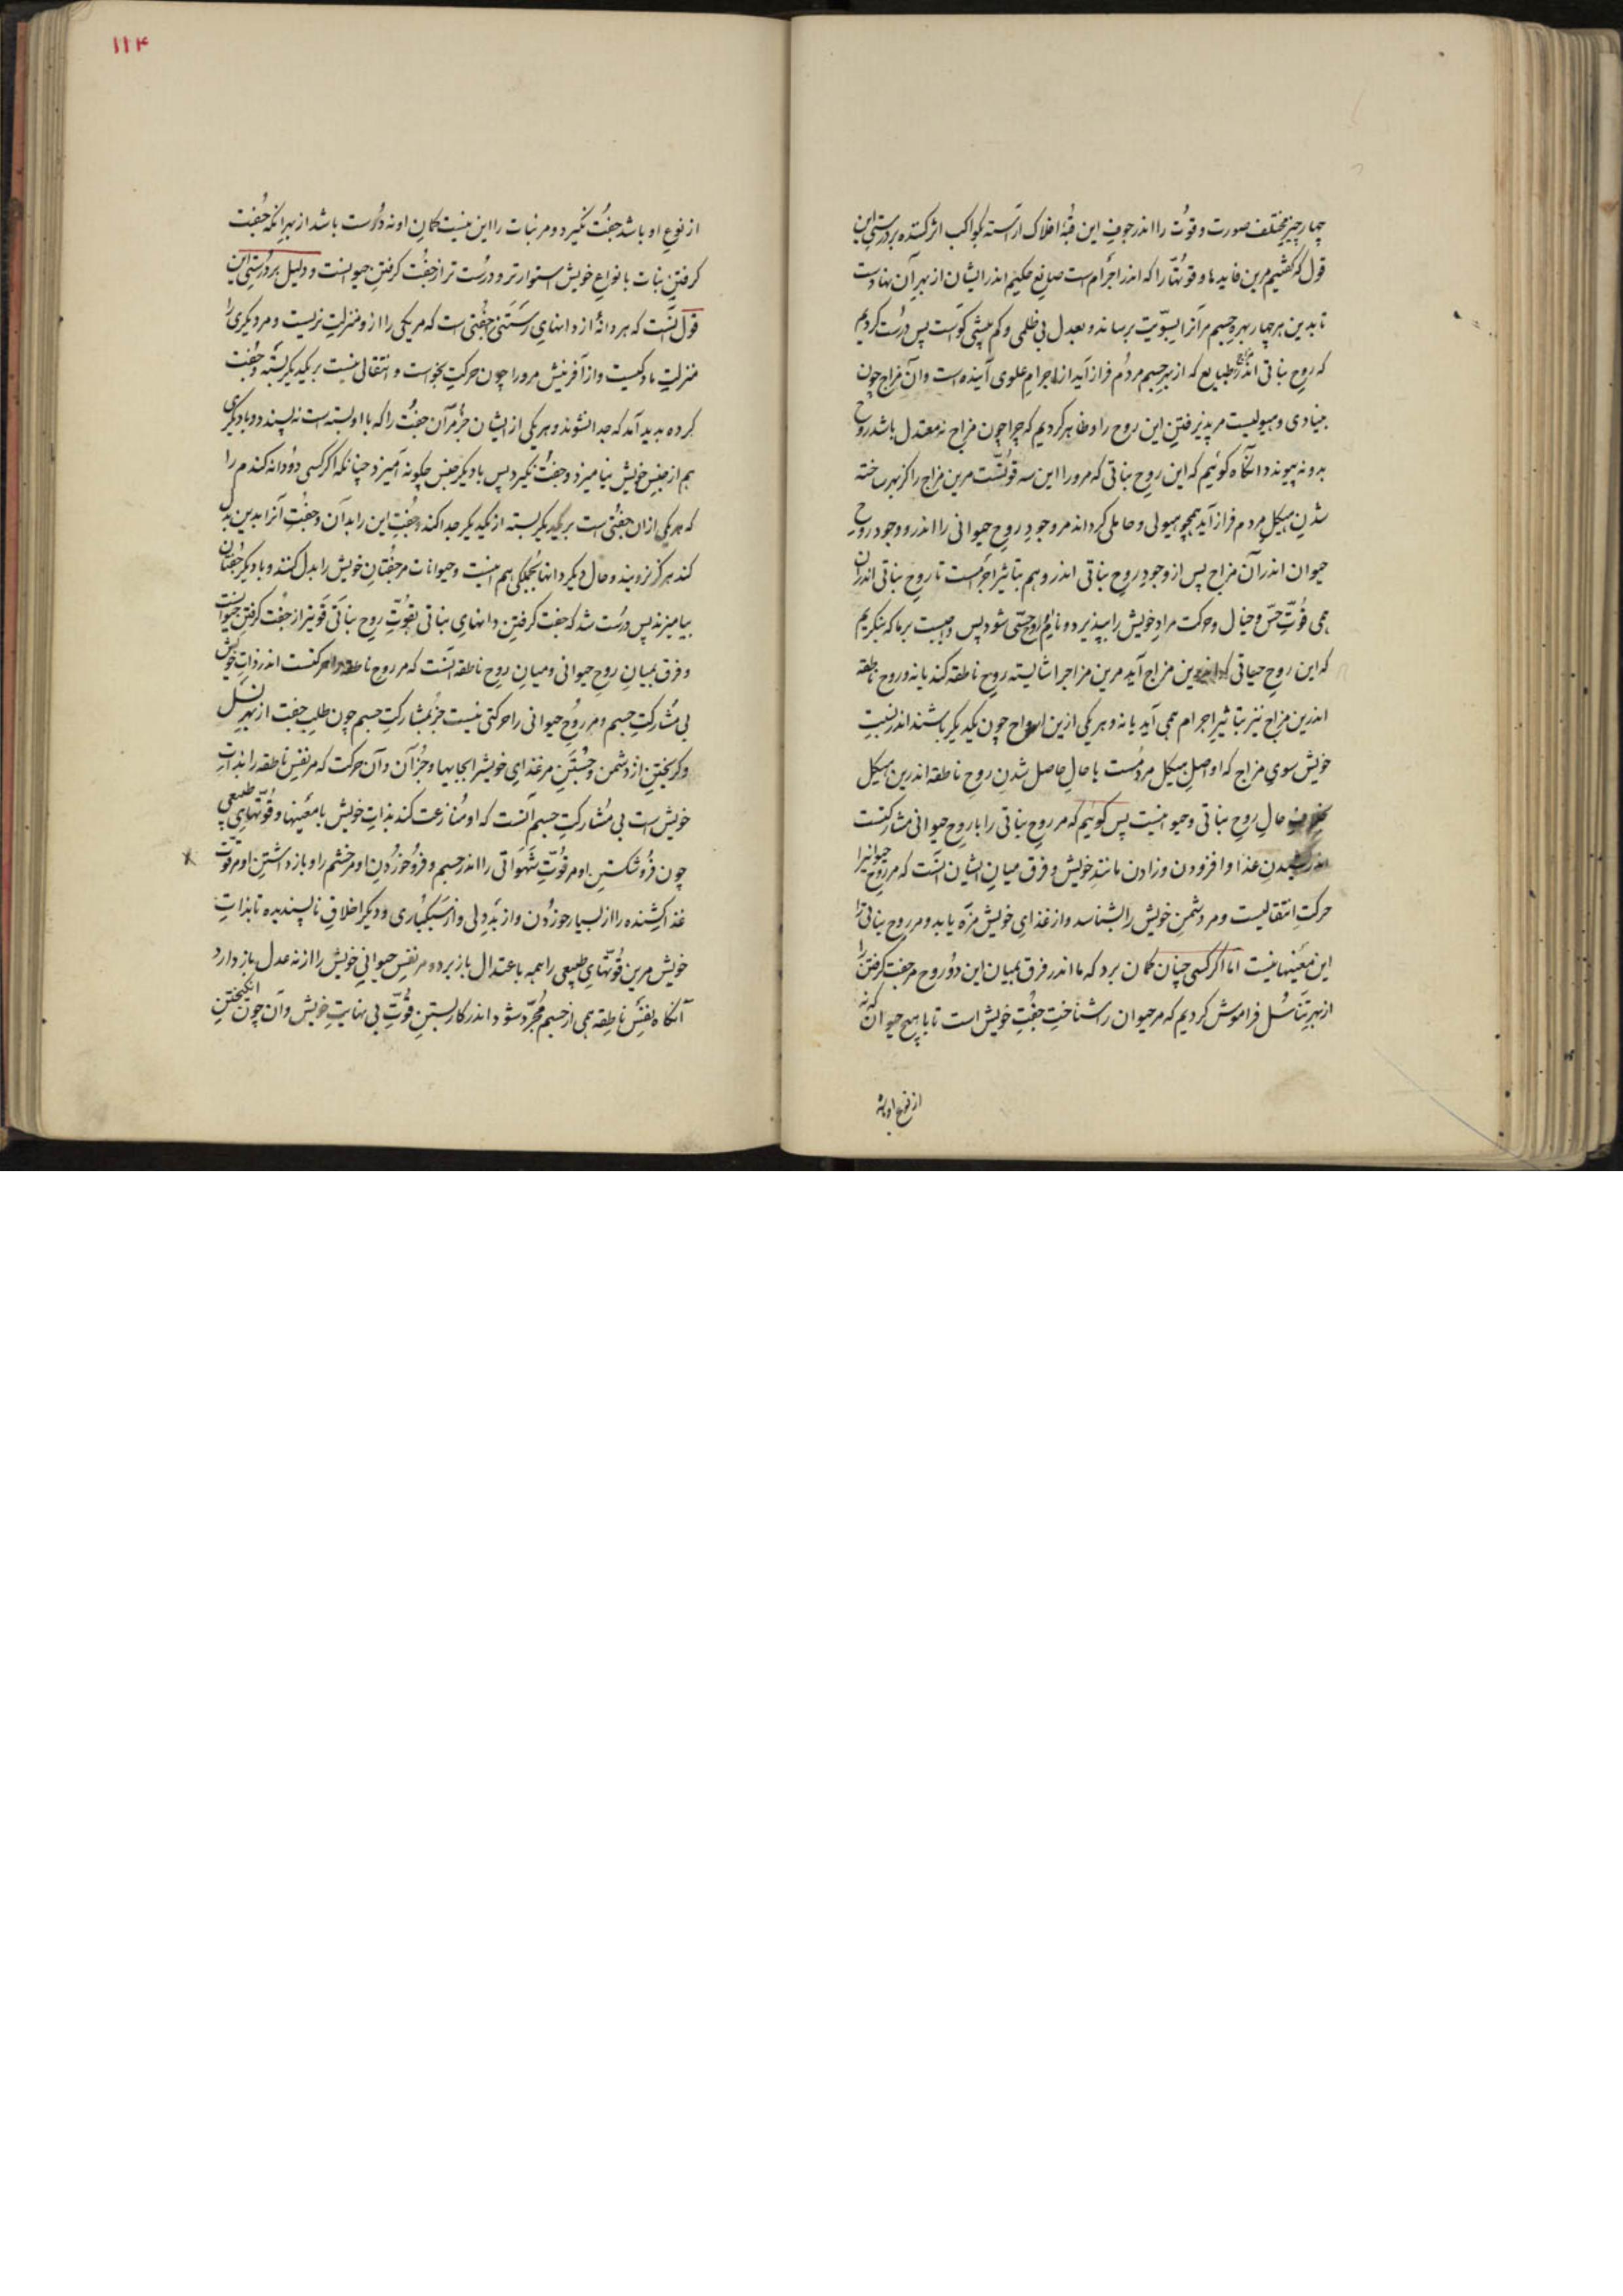 چهار چیز مختلف صورت و قوت را اندر جوف این قبهٔ افلاک آراسته بکواکب اثر کننده بر درستی این
قول که گفتیم مرین فایدها و قوتها را که اندر اجرام است صانع حکیم اندر ایشان از بهر آن نهادست
تا بدین هر چهار بهره جسم مر آنرا بسویت برساند و بعدل بی ظلمی و کم بیشی کوست پس درست کردیم
که روح نباتی اندر طبایع که از بهر جسم مردم فراز آید از اجرام علوی آینده است و آن مزاج چون
بنیادی و هیولیست مر پذیرفتن این روح را و ظاهر کردیم که چرا چون مزاج نه معتدل باشد روح
بدو نه پیوندد آنگاه گوئیم که این روح نباتی که مرورا این سه قوتست مرین مزاج را کز بهر ساخته
شدن هیکل مردم فراز آید همچو هیولی و حاملی گرداند مر وجود روح حیوانی را اندرو و وجود روح
حیوان اندر آن مزاج پس از وجود روح نباتی اندرو هم بتاثیر اجرامست تا روح نباتی اندران
همی قوت حس و خیال و حرکت مراد خویش را بپذیرد و نام روح حسی شود پس واجبست بر ما که بنگریم
که این روح حیاتی که اندرین مزاج آید مرین مزاجرا شایسته روح ناطقه کند یا نه و روح ناطقه
اندرین مزاج نیز بتاثیر اجرام همی آید یا نه و هر یکی ازین ارواح چون یکدیگر باشند اندر نسبت
خویش سوی مزاج که او اصل هیکل مردمست یا حال حاصل شدن روح ناطقه اندرین هیکل
بخلاف حال روح نباتی و حیوانیست پس گوئیم که مر روح نباتی را با روح حیوانی مشارکتست
اندر کشیدن غذا و افزودن و زادن مانند خویش و فرق میان ایشان آنست که مر روح حیوانیرا
حرکت انتقالیست و مر دشمن خویش را بشناسد و از غذای خویش مزه یابد و مر روح نباتی را
این معنیها نیست اما اگر کسی چنان گمان برد که ما اندر فرق بمیان این دو روح مر جفت گرفتن را
از بهر تناسل فراموش کردیم که مر حیوان را شناخت جفت خویش است تا با هیچ حیوان که نه
از نوع او باشد
۱۱۴
از نوع او باشد جفت نگیرد و مر نبات را این نیست گمان او نه درست باشد از بهر آنکه جفت
گرفتن نبات با نواع خویش استوارتر و درست تر از جفت گرفتن حیوانست و دلیل بر درستی این
قول آنست که هر دانهٔ از دانهای رستنی جفتی است که مر یکی را ازو منزلت نریست و مر دیگری را
منزلت مادگیست و از آفرینش مرورا چون حرکت بخواست و انتقالی نیست بر یکدیگر بسته و جفت
کرده پدید آمد که جدا نشوند و هر یکی از ایشان جز مر آن جفت را که با او بسته است نه پسندد و با دیگری
هم از جنس خویش نیامیزد و جفت نگیرد پس با دیگر جنس چگونه آمیزد چنانکه اگر کسی دو دانه گندم را
که هر یکی ازان جفتی است بر یکدیگر بسته از یکدیگر جدا کند و جفت این را بدآن و جفت آنرا بدین بدل
کند هرگز نرویند و حال دیگر دانها بجملگی هم اینست و حیوانات مر جفتان خویش را بدل کنند و با دیگر جفتان
بیامیزند پس درست شد که جفت گرفتن دانهای نباتی بقوت روح نباتی قویتر از جفت گرفتن حیوانست
و فرق بمیان روح حیوانی و میان روح ناطقه آنست که مر روح ناطقه را حرکتست اندر ذات خویش
بی مشارکت جسم و مر روح حیوانی را حرکتی نیست جز بمشارکت جسم چون طلب جفت از بهر نسل
و گریختن از دشمن و جستن مر غذای خویشرا بجایها و جز آن و آن حرکت که مر نفس ناطقه را بذات
خویش است بی مشارکت جسم آنست که او منازعت کند بذات خویش با معنیها و قوتهای طبیعی
چون فرو شکستن او مر قوت شهوانی را اندر جسم و فرو خوردن او مر خشم را و باز داشتن او مر قوت
غذا کشنده را از بسیار خوردن و از بددلی و از سبکساری و دیگر اخلاق ناپسندیده تا بذات
خویش مرین قوتهای طبیعی را همه باعتدال باز برد و مر نفس حیوانی خویش را از نه عدل باز دارد
آنگاه نفس ناطقه همی از جسم مجرد شود اندر کار بستن قوت بی نهایت خویش و آن چون انگیختن